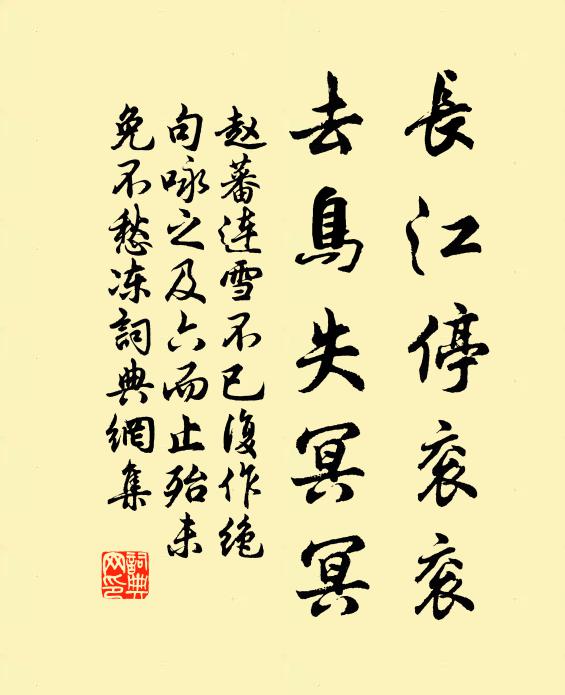 長江停衮衮
去鳥失冥冥
赵蕃连雪不已復作绝
句咏之及六而止殆未
免不愁冻詞典網集
詞典
网印